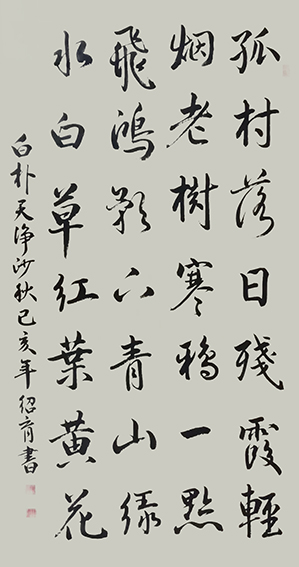 孤村落日殘霞輕
烟老樹寒鴉一點
飛鴻影下青山綠
水白草紅葉黃花
白朴天净沙秋己亥年紹育書